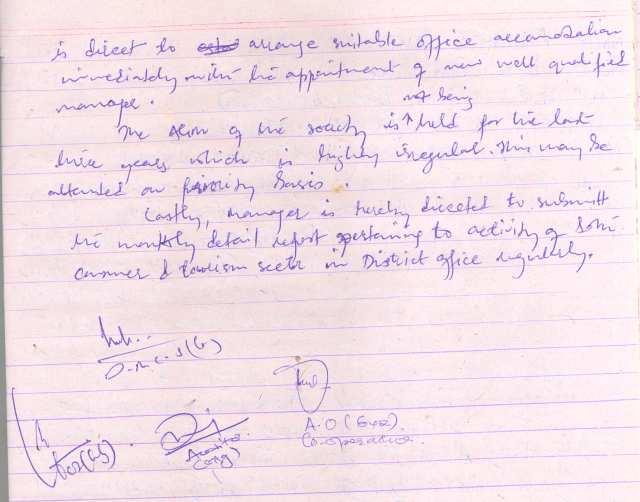 is direct to arrange suitable office accomodation
immediately with the appointment of new well qualified
manager.
not being
The AGM of the society is held for the last
three years which is highly irregular. This may be
attended on priority basis.
Lastly, manager is hereby directed to submitt
the monthly detail report pertaining to activity of both
consumer & tourism sector in District office regularly.
A.O (Gen).
Co-operative.